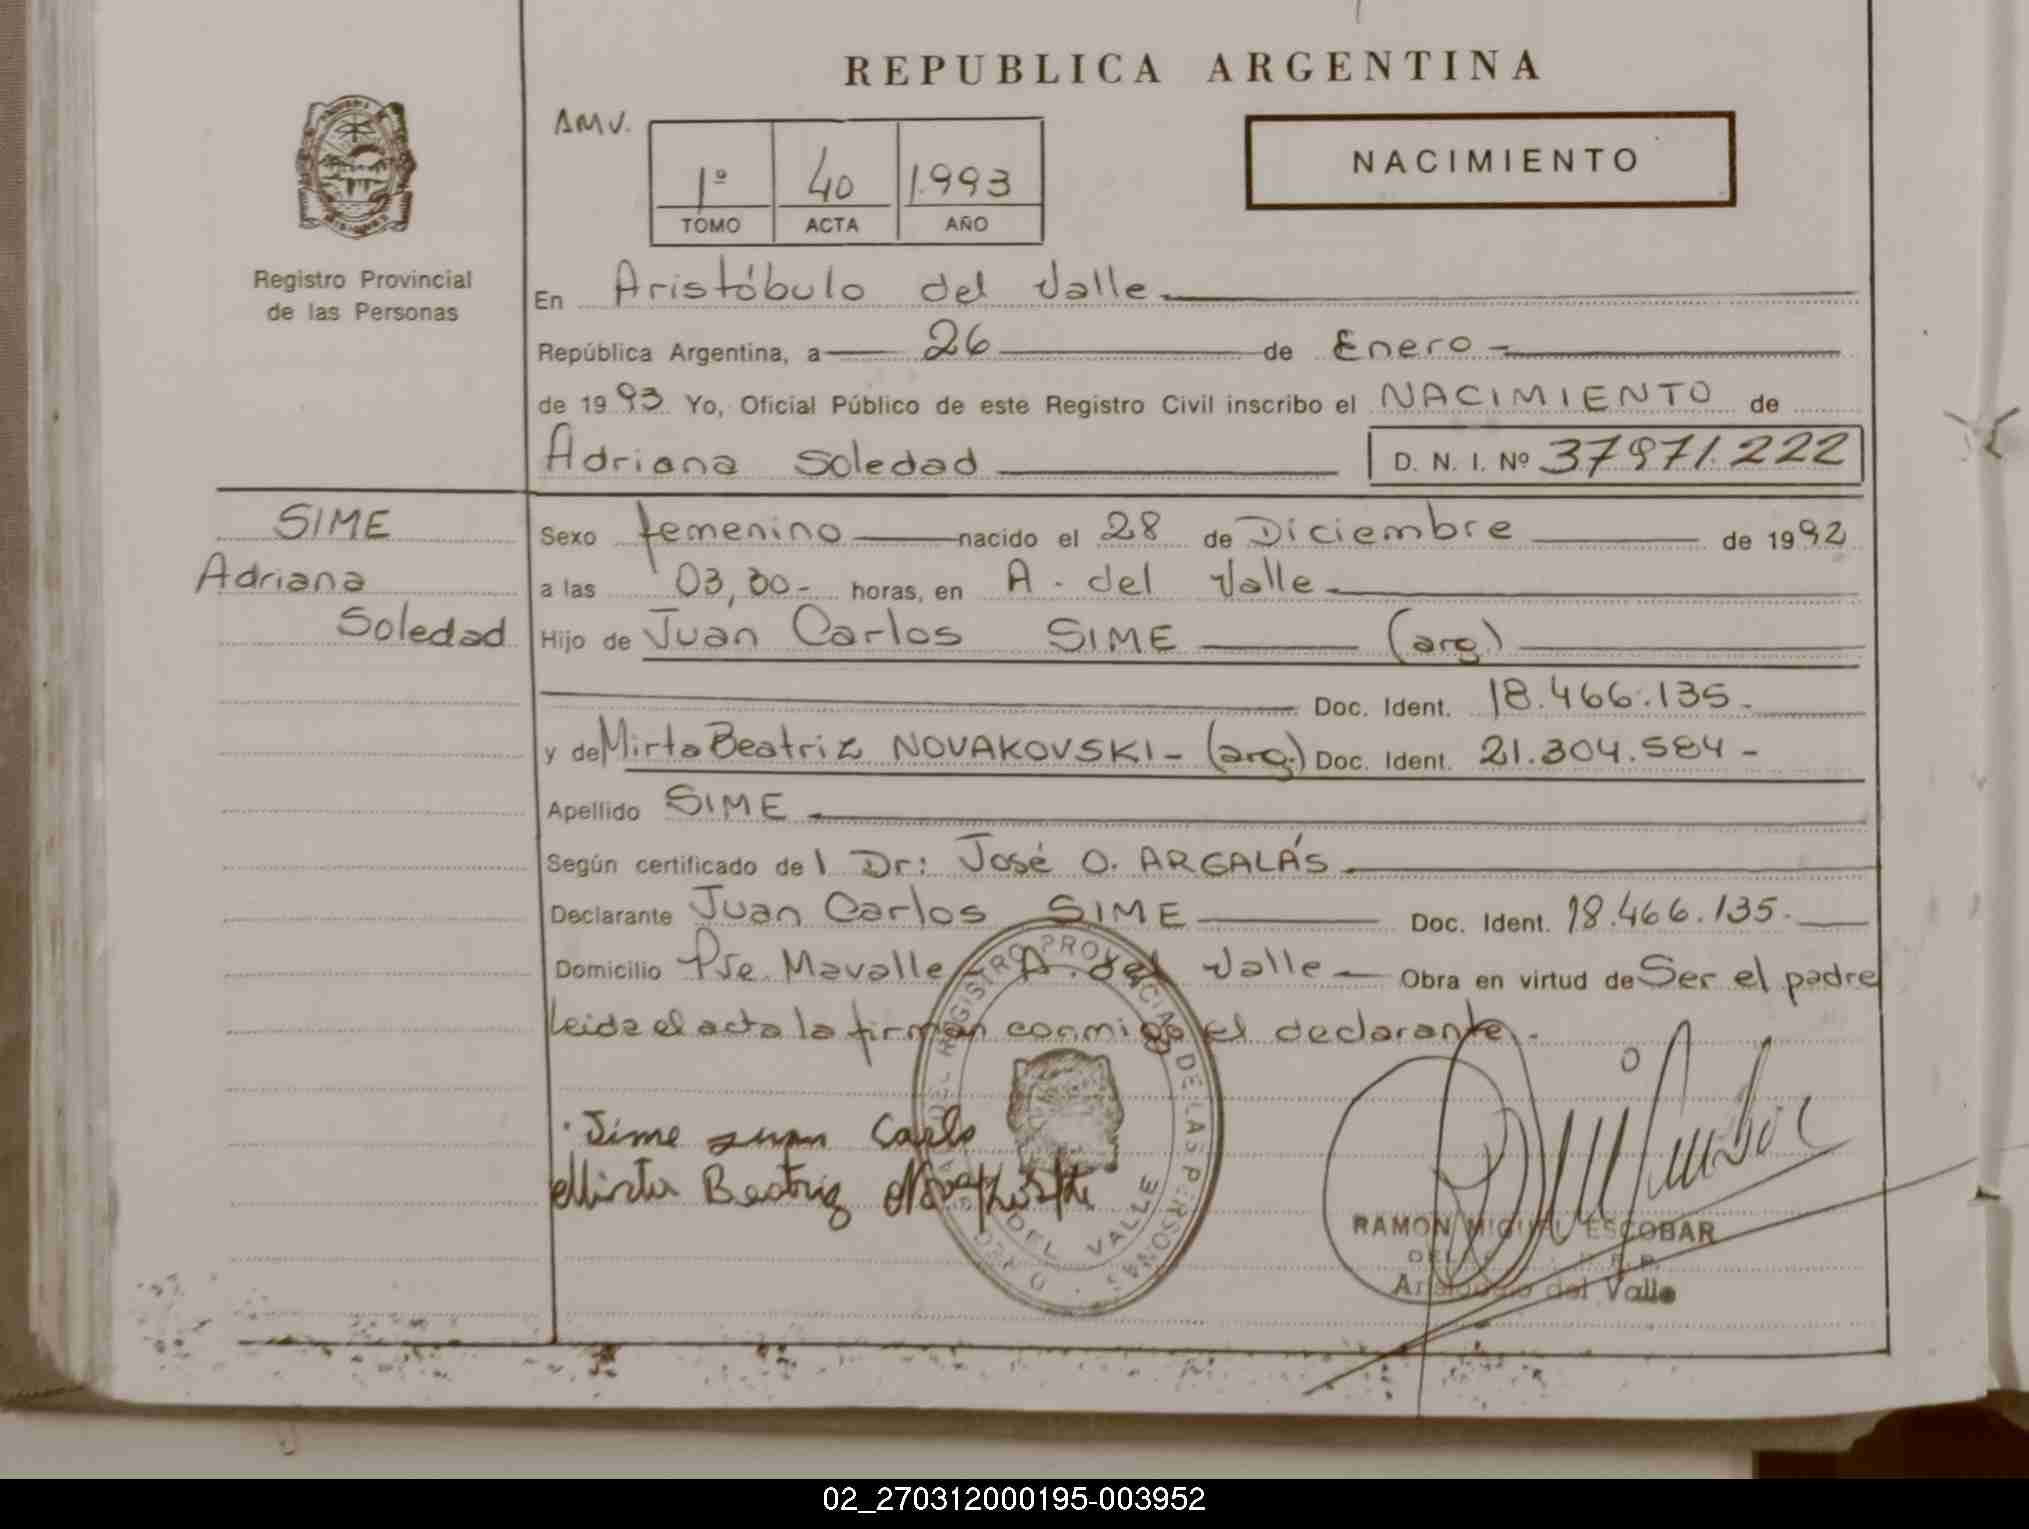 REPUBLICA ARGENTINA
AMV.
1º 40 1993
TOMO ACTA AÑO
NACIMIENTO
Registro Provincial
de las Personas
En Aristóbulo del Valle
República Argentina, a 26 de Enero
de 1993 Yo, Oficial Público de este Registro Civil inscribo el NACIMIENTO de
Adriana Soledad D. N. I. Nº 37971.222
SIME
Adriana
Soledad
Sexo femenino nacido el 28 de Diciembre de 1992
a las 03,30- horas, en A. del Valle
Hijo de Juan Carlos SIME (arg)
Doc. Ident. 18.466.135.
y de Mirta Beatriz NOVAKOVSKI- (arg.) Doc. Ident. 21.304.584-
Apellido SIME
Según certificado del Dr: José O. ARGALÁS
Declarante Juan Carlos SIME Doc. Ident. 18.466.135.
Domicilio Pje. Mavalle- A. del Valle Obra en virtud de Ser el padre
Leida el acta la firman conmigo el declarante.
REGISTRO PROVINCIAL DE LAS PERSONAS
DEL VALLE
Sime Juan Carlo
Mirta Beatriz
RAMON MIGUEL ESCOBAR
Aristobulo del Valle
02_270312000195-003952